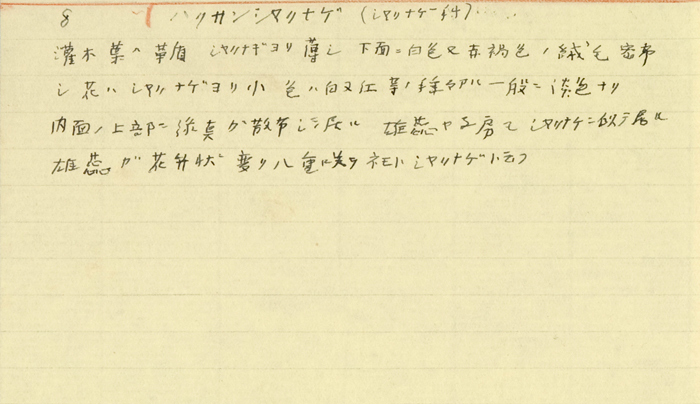 8 ハクサンシヤクナゲ (シヤクナゲ科)
灌木葉ハ革質 シヤクナゲヨリ薄シ 下面ニ白色又赤褐色ノ絨毛密布
シ花ハ シヤクナゲヨリ小 色ハ白又紅等ノ種々アル 一般ニ淡色ナリ
内面ノ上部ニ緑点ガ散布シテ居ル 雄蕊や子房てシヤクナゲニ似テ居ル
雄蕊ガ花弁状 変り八重咲ヲ ネモトシヤクナゲト云フ